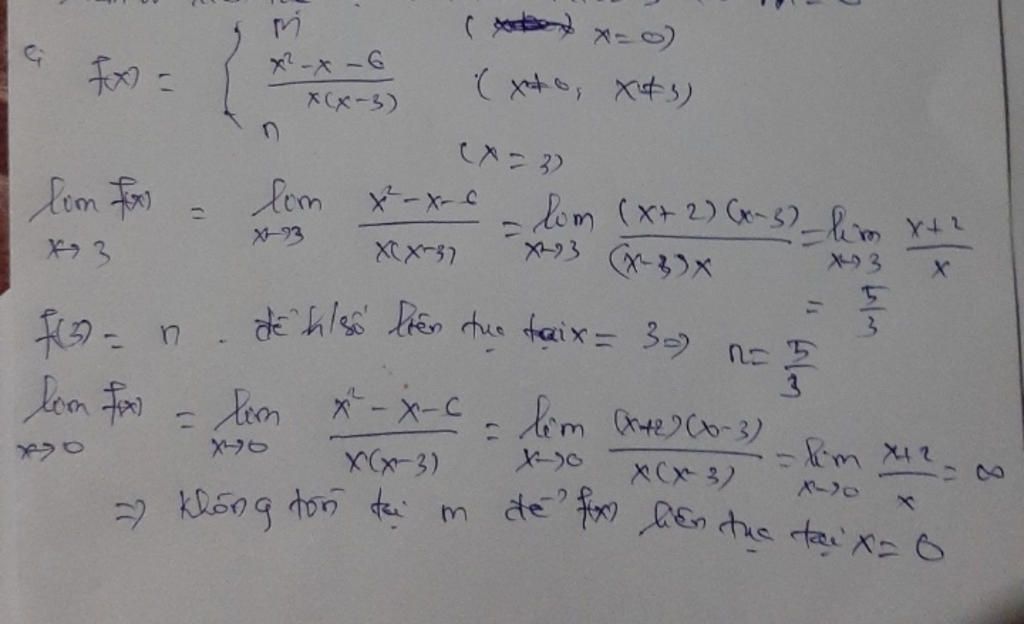 c, f(x) = { m (x=0)
x²-x-6 / x(x-3) (x≠0, x≠3)
n (x=3)
lim f(x) x→3 = lim x→3 x²-x-6 / x(x-3) = lim x→3 (x+2)(x-3) / (x-3)x = lim x→3 x+2 / x
= 5/3
f(3) = n . để h/số liên tục tại x = 3 ⇒ n = 5/3
lim f(x) x→0 = lim x→0 x²-x-6 / x(x-3) = lim x→0 (x+2)(x-3) / x(x-3) = lim x→0 x+2 / x = ∞
⇒ không tồn tại m để f(x) liên tục tại x = 0